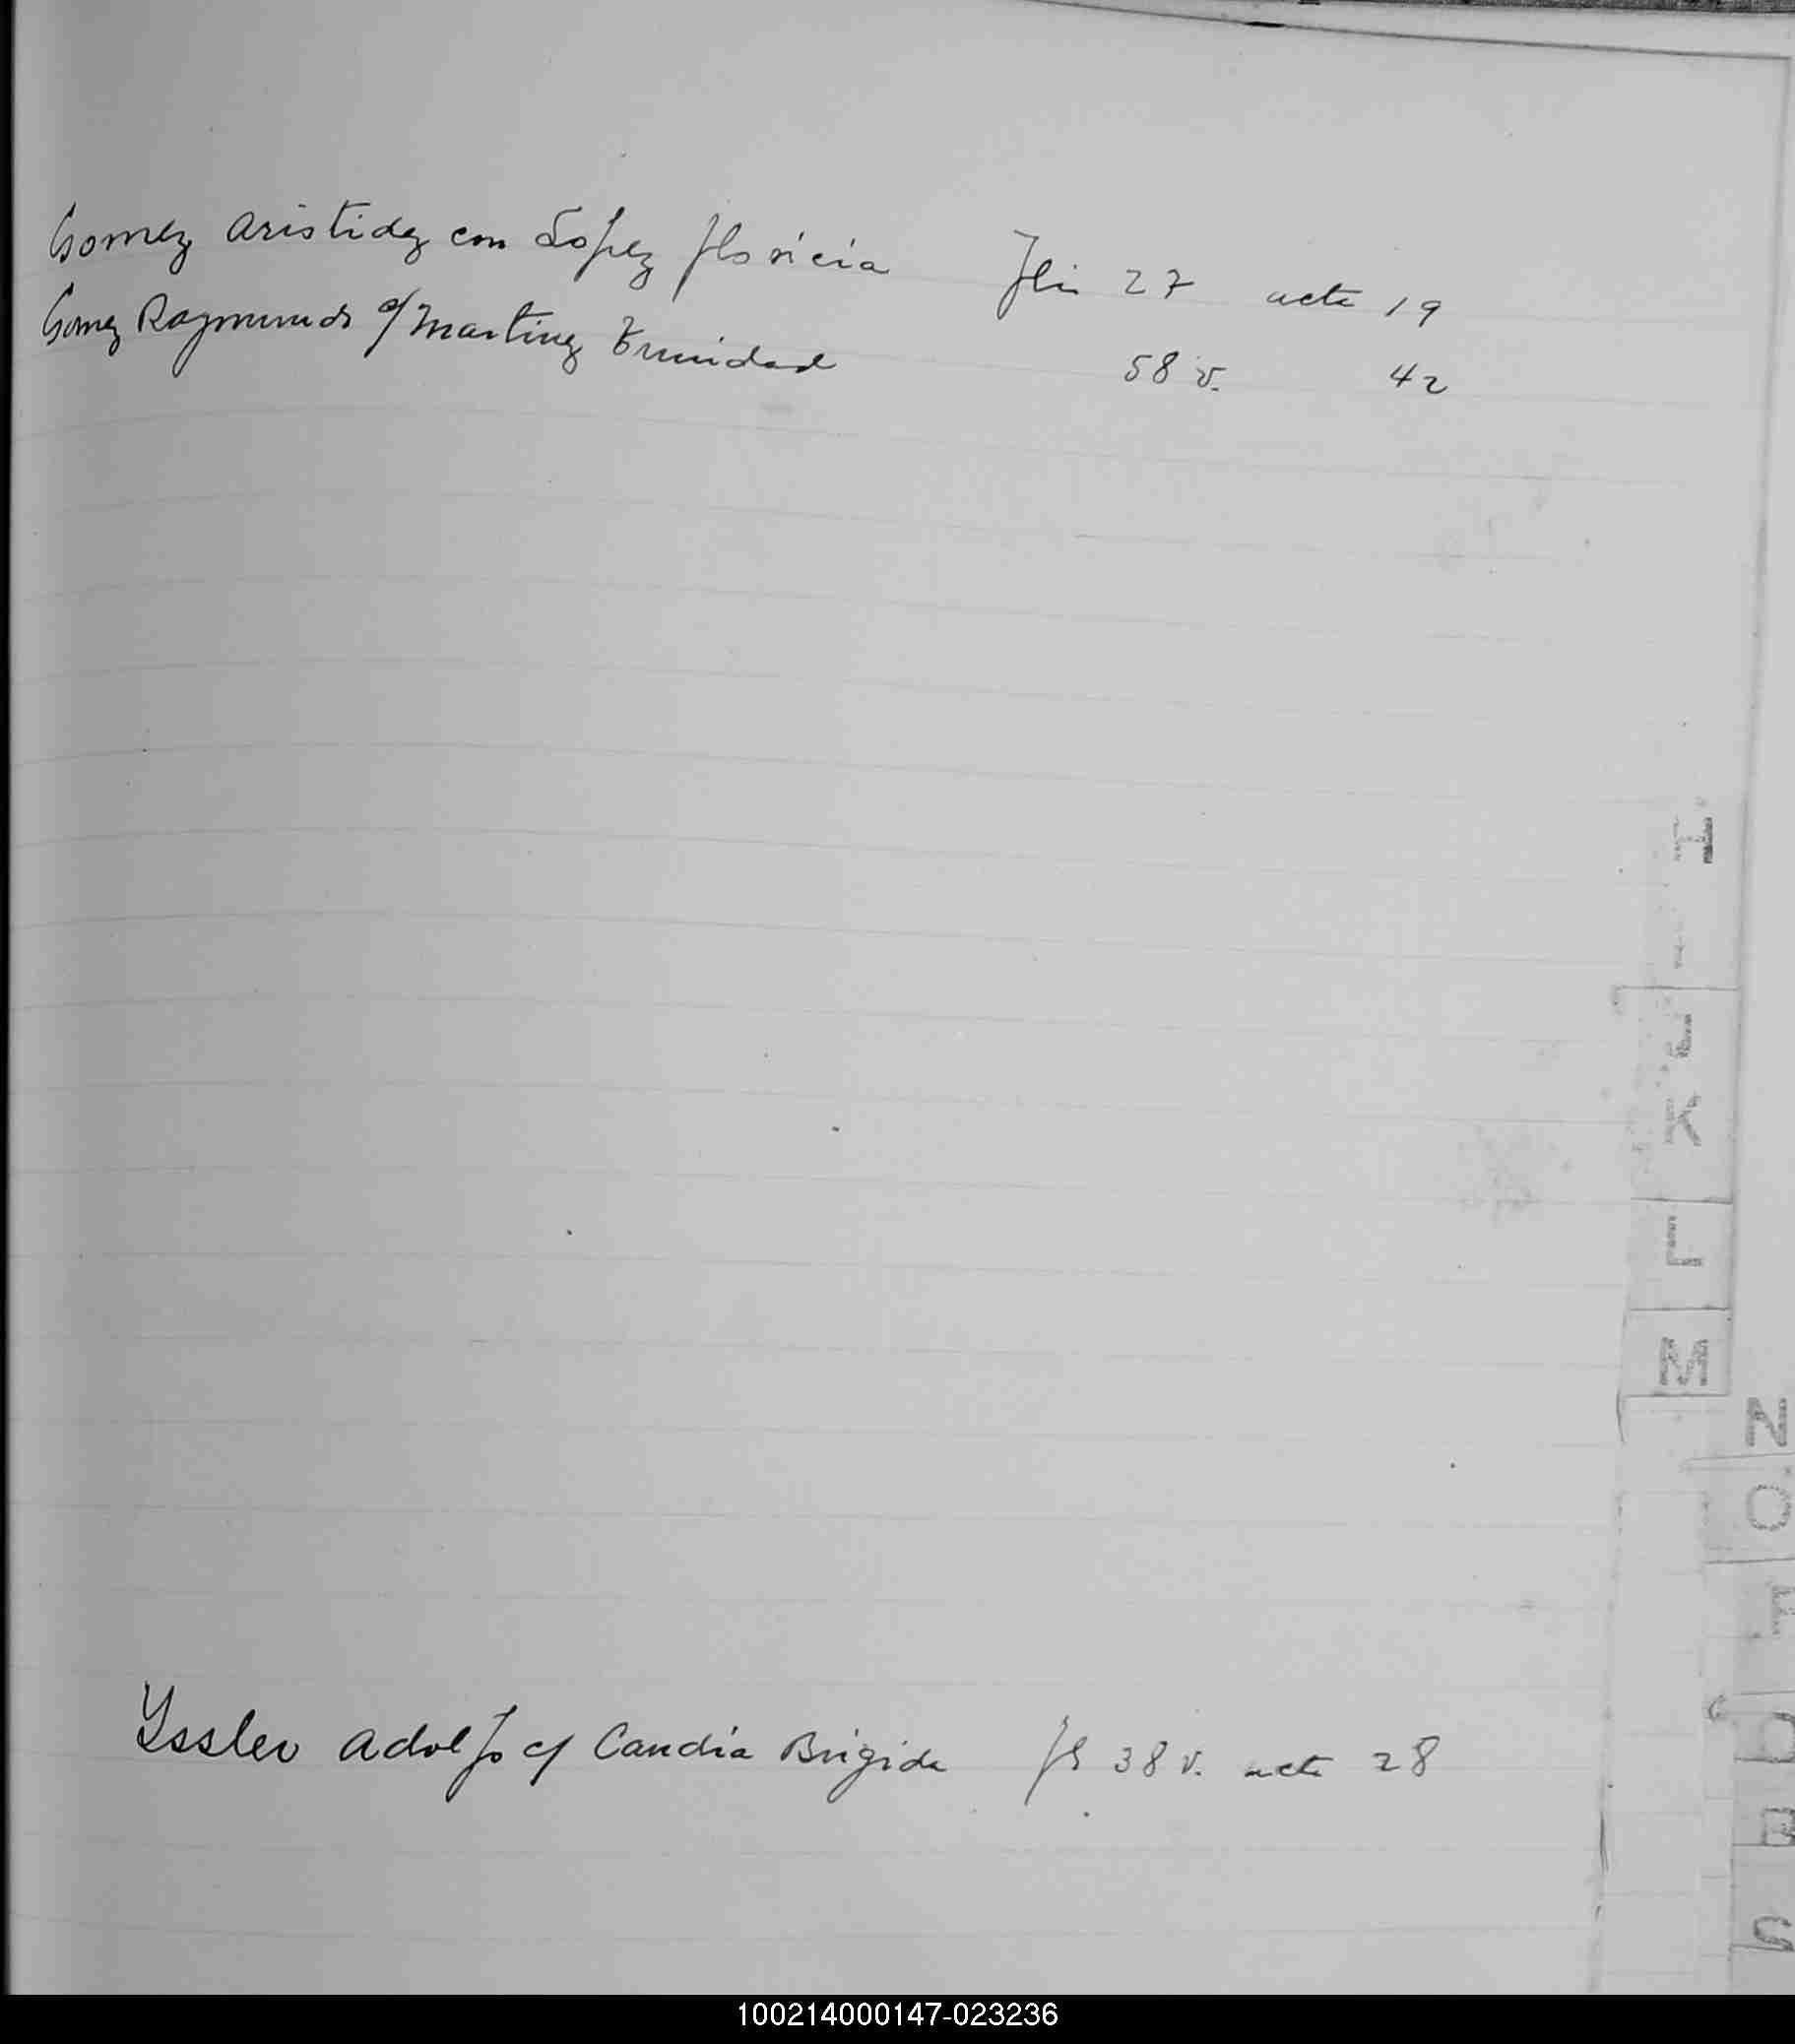 Gomez Aristidez con Lopez floricia Fli 27 acta 19
Gomez Raymundo c/ Martinez Trinidad 58 v. 42
I
K
L
M
N
O
Yssler Adolfo c/ Candia Brigida fs 38 v. acta 28
100214000147-023236